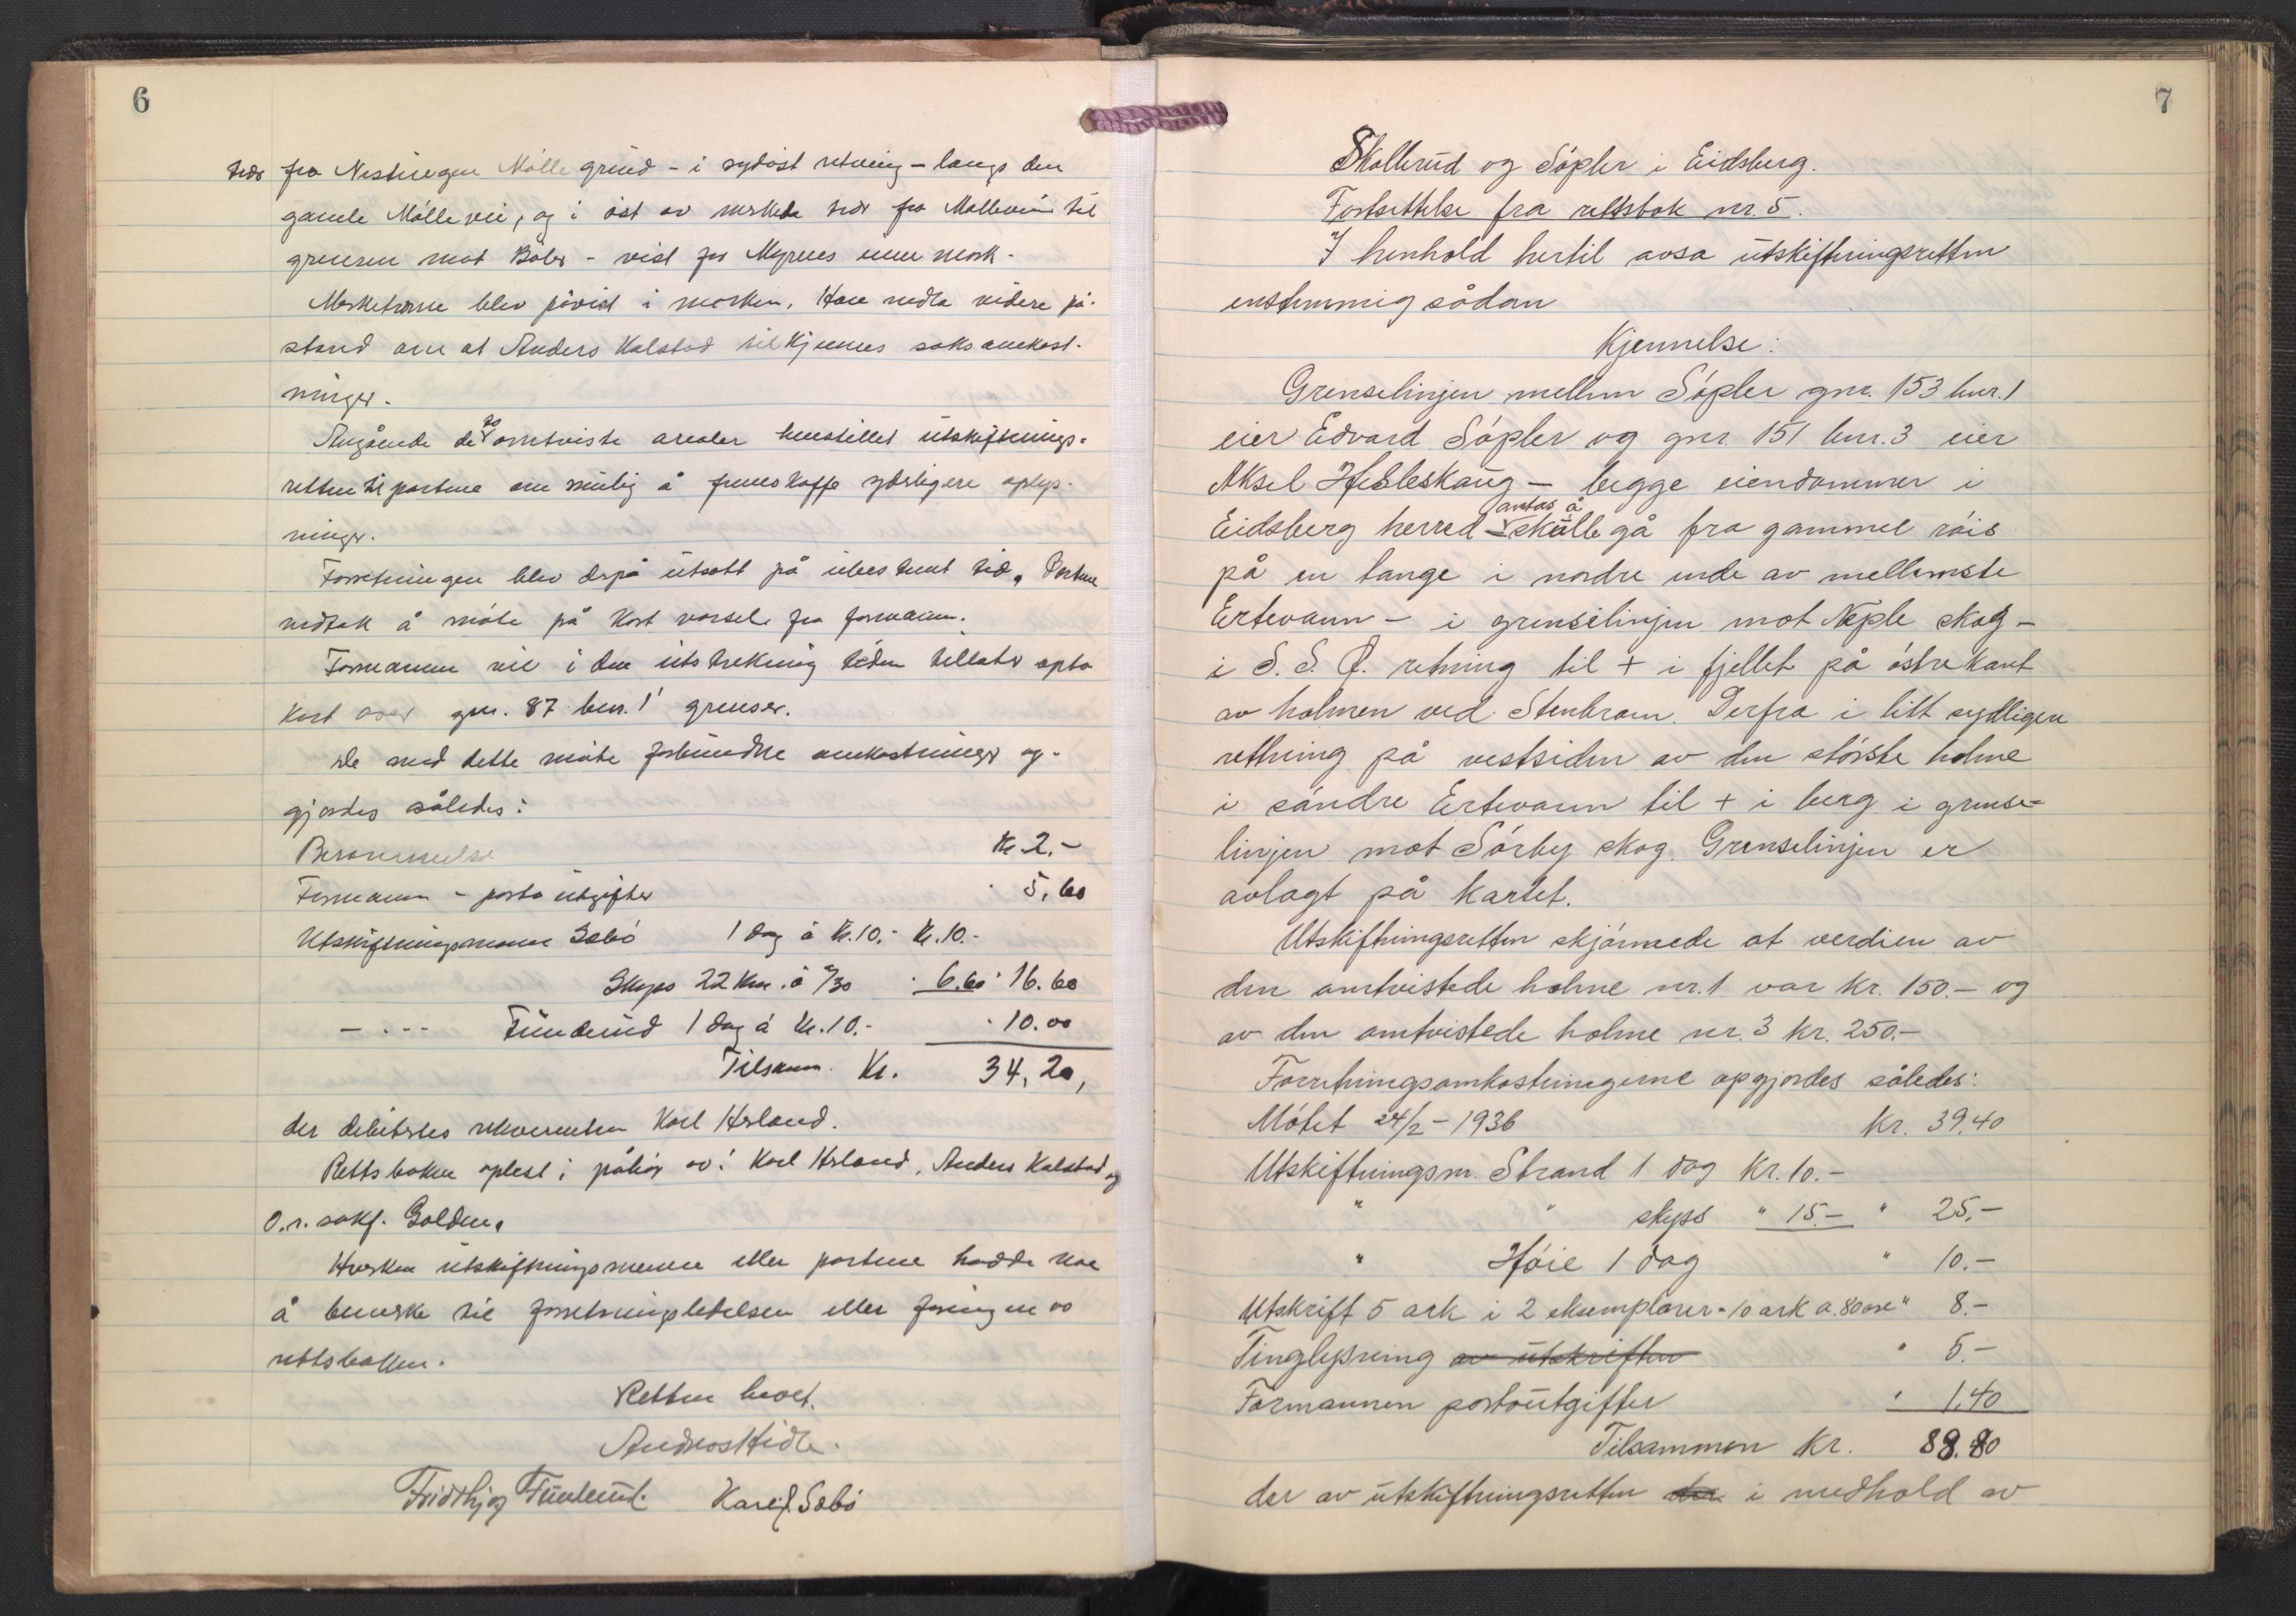 6
trær fra Nestingen Mølle grind - i sydöst retning - langs den
gamle Mölle vei, og i öst av merkede trær fra Mölleveien til
grensen mot Böler - vist for Myrenes inn mark.
Merketrærne blev påvist i marken. Han nedla videre på-
stand om at Anders Kalstad tilkjennes saksomkost-
ninger.
Angående de omtvistede arealer henstillet utskiftnings-
retten til partene om mulig å fremskaffe yderligere oplys-
ninger.
Forretningen blev derpå utsatt på ubestemt tid, Partene
vedtok å möte på kort varsel fra formannen.
Formannen vil i den utstrekning tiden tillater opta
kart over gnr. 87 bnr. 1 grenser.
De med dette möte forbundne omkostninger op-
gjordes således:
Berammelse Kr. 2.-
Formann - porto utgifter " 5,60
Utskiftningsmann Sæbö 1 dag á Kr. 10.- Kr. 10.-
Skyss 22 km. á -/30 " 6.60 " 16.60
- " -- Funderud 1 dag á Kr. 10.- " 10.00
Tilsam. Kr. 34,20,
der debitertes rekvirenten Karl Herland.
Rettsboken oplest i påhör av: Karl Herland, Anders Kalstad og
O.r. sakf. Golden.
Hverken utskiftningsmenn eller partene hadde noe
å bemerke til forretningsledelsen eller föringen av
rettsboken.
Retten hevet.
Andreas Hidle.
Fridthjof Fundeud. Kare J. Sæbö
7
Skollerud og Söpler i Eidsberg.
Fortsettelse fra rettsbok nr. 5.
I henhold hertil avsa utskiftningsretten
enstemmig sådan
Kjennelse:
Grenselinjen mellem Söpler gnr. 153 bnr. 1
eier Edvard Söpler og gnr. 151 bnr. 3 eier
Aksel Hesleskaug - begge eiendommer i
antas å
Eidsberg herred - skulle gå fra gammel röis
på en tange i nordre ende av mellemste
Ertevann - i grenselinjen mot Neple skog -
i S. S. Ø. retning til + i fjellet på östre kant
av holmen ved Stenbram. Derfra i litt sydligere
rettning på vestsiden av den störste holme
i söndre Ertevann til + i berg i grense-
linjen mot Sörby skog. Grenselinjen er
avlagt på kartet.
Utskiftningsretten skjönnede at verdien av
den omtvistede holme nr. 1 var kr. 150.- og
av den omtvistede holme nr. 3 kr. 250.-
Forretningsomkostningerne opgjordes således:
Mötet 24/2-1936 Kr. 39.40
Utskiftningsm. Strand 1 dag Kr. 10.-
" " skyss " 15.- " 25.-
" Höie 1 dag " 10.-
Utskrift 5 ark i 2 eksemplarer = 10 ark a. 80 öre " 8.-
Tinglysning av utskriften " 5.-
Formannen portoutgifter " 1.40
Tilsammen Kr. 88.80
der av utskiftningsretten der i medhold av